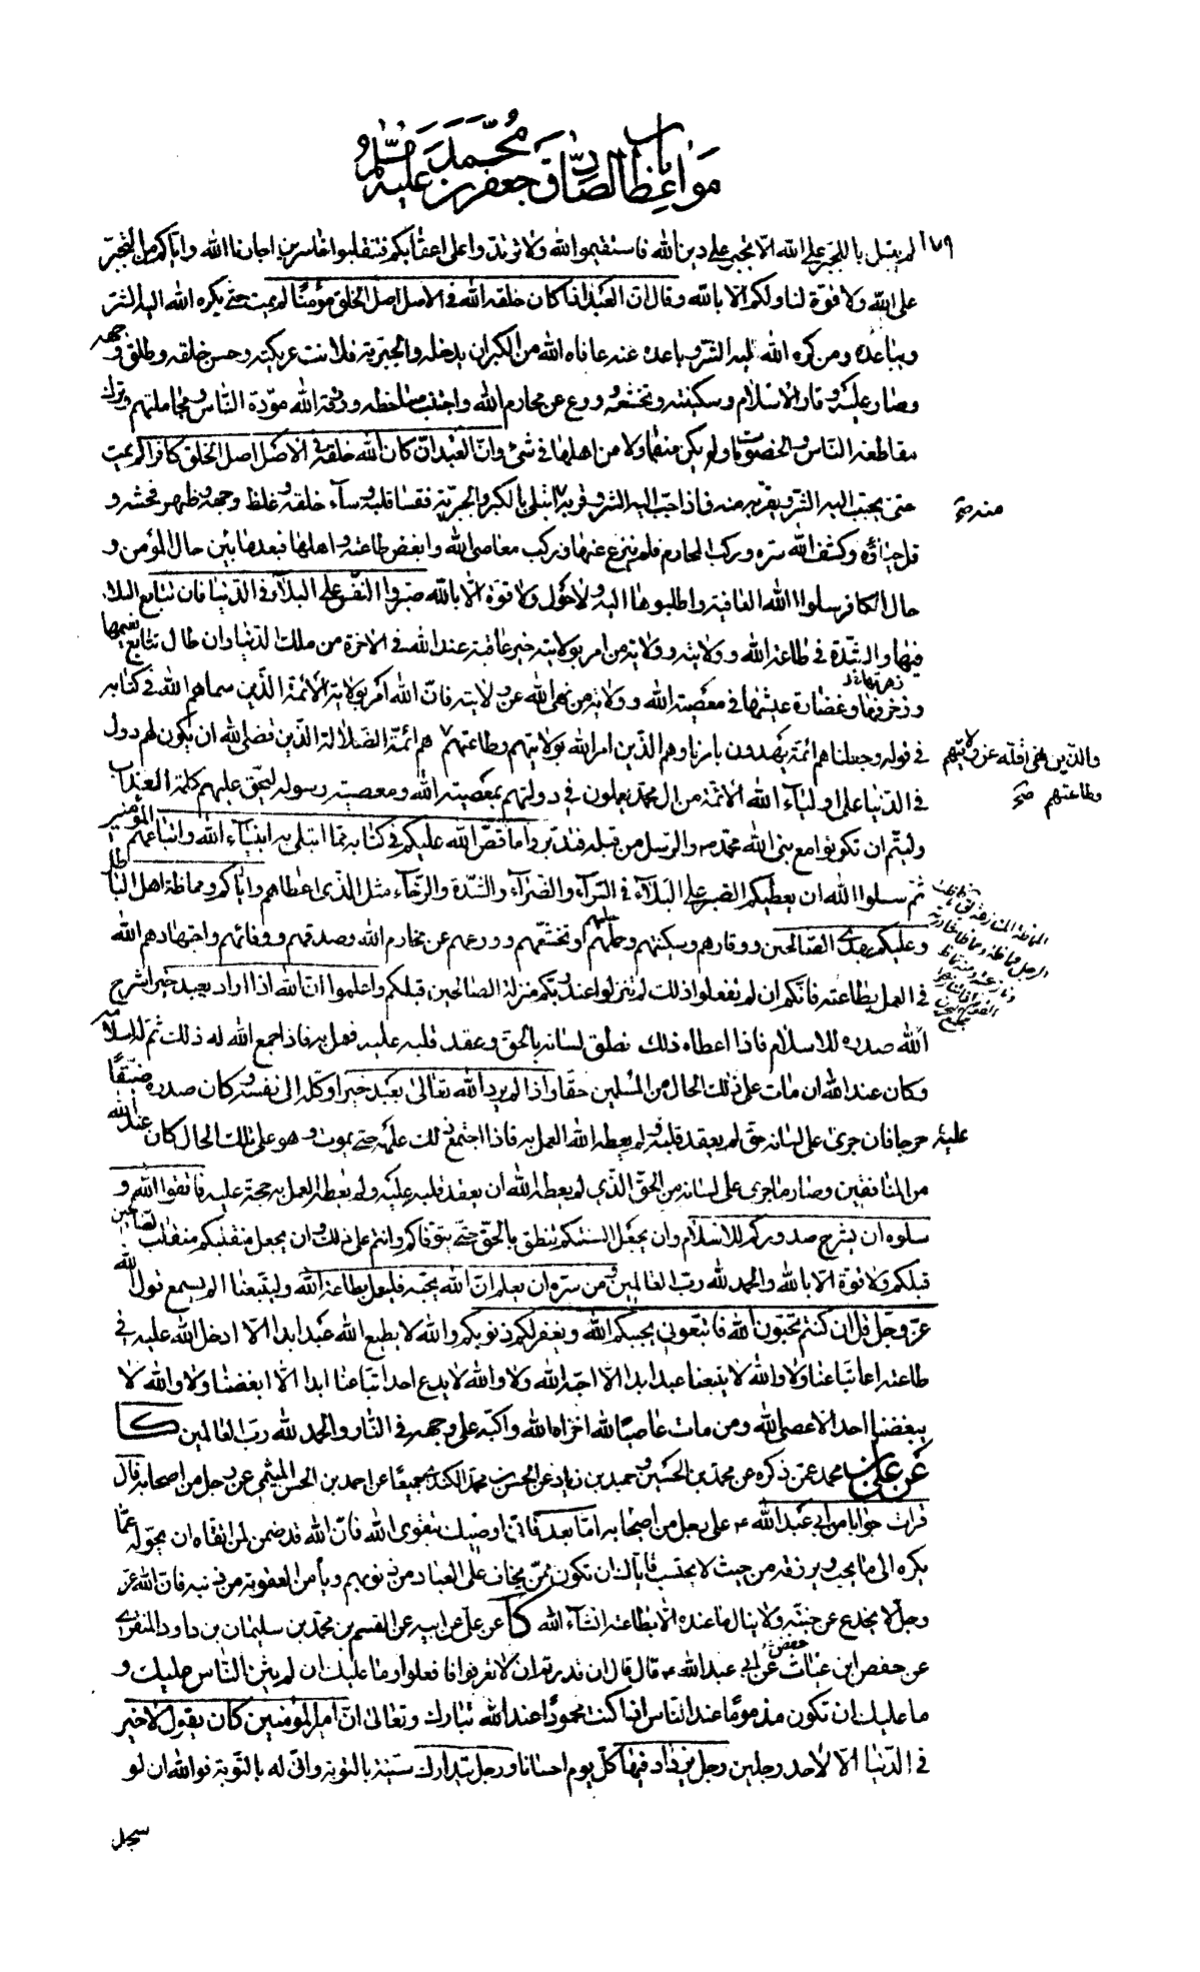 باب
مواعظ الصادق جعفر بن محمد عليه السلم
١٧٩ لم يقبل بالتجبر على الله الا تجبر على دين الله فاستقيموا لله ولا ترتدوا على اعقابكم فتنقلبوا خاسرين اجارنا الله واياكم من التجبر
على الله ولا قوة لنا ولكم الا بالله وقال ان العبد اذا كان خلقه الله في الاصل اصل الخلق مؤمنا لم يمت حتى يكره الله اليه الشر
ويباعده ومن كره الله اليه الشر وباعده عنه عافاه الله من الكبر ان يدخله والجبرية فلانت عريكته وحسن خلقه وطلق وجهه
وصار عليه وقار الاسلام وسكينته وتخشعه وورع عن محارم الله واجتنب مساخطه ورزقه الله مودة الناس ومجاملتهم وترك
مقاطعة الناس والخصومات ولم يكن منها ولا من اهلها في شئ وان العبد ان كان الله خلقه في الاصل اصل الخلق كافرا لم يمت
حتى يحبب اليه الشر ويقربه منه فاذا حبب اليه الشر وقربه ابتلي بالكبر والجبرية فقسا قلبه وساء خلقه وغلظ وجهه وظهر فحشه و
منه صح
قل حياؤه وكشف الله ستره وركب المحارم فلم ينزع عنها وركب معاصي الله وابغض طاعته واهلها فبعد ما بين حال المؤمن و
حال الكافر سلوا الله العافية واطلبوها اليه ولا حول ولا قوة الا بالله صبروا النفس على البلاء في الدنيا فان تتابع البلاء
فيها والشدة في طاعة الله وولايته وولاية من امر بولايته خير عاقبة عند الله في الاخرة من ملك الدنيا وان طال تتابع نعيمها
زهرتها
وزخرفها وغضارة عيشها في معصية الله وولاية من نهى الله عن ولايته فان الله امر بولاية الائمة الذين سماهم الله في كتابه
في قوله وجعلناهم ائمة يهدون بامرنا وهم الذين امر الله بولايتهم وطاعتهم هم ائمة الضلالة الذين قضى الله ان يكون لهم دول
والذين نهى الله عن ولايتهم
وطاعتهم صح
في الدنيا على اولياء الله الائمة من ال محمد يعملون في دولتهم بمعصية الله ومعصية رسوله ليحق عليهم كلمة العذاب
وليتم ان تكونوا مع نبي الله محمد ص والرسل من قبله فتدبروا ما قص الله عليكم في كتابه مما ابتلى به انبياءه واتباعهم المؤمنين
ثم سلوا الله ان يعطيكم الصبر على البلاء في السراء والضراء والشدة والرخاء مثل الذي اعطاهم واياكم ومماظة اهل الباطل
وعليكم بهدى الصالحين ووقارهم وسكينتهم وحلمهم وتخشعهم وورعهم عن محارم الله وصدقهم ووفائهم واجتهادهم لله
في العمل بطاعته فانكم ان لم تفعلوا ذلك لم تنزلوا عند ربكم منزلة الصالحين قبلكم واعلموا ان الله اذا اراد بعبد خيرا شرح
الله صدره للاسلام فاذا اعطاه ذلك نطق لسانه بالحق وعقد قلبه عليه فعمل به فاذا جمع الله له ذلك تم له اسلامه
وكان عند الله ان مات على ذلك الحال من المسلمين حقا واذا لم يرد الله تعالى بعبد خيرا وكله الى نفسه وكان صدره ضيقا
عليه حرجا فان جرى على لسانه حق لم يعقد قلبه ولم يعطه الله العمل به فاذا اجتمع ذلك عليه حتى يموت وهو على تلك الحال كان عند الله
من المنافقين وصار ما جرى على لسانه من الحق الذي لم يعطه الله أن يعقد قلبه عليه ولم يعطه العمل به حجة عليه فاتقوا الله و
سلوه ان يشرح صدوركم للاسلام وان يجعل السنتكم تنطق بالحق حتى يتوفاكم وانتم على ذلك وان يجعل منقلبكم منقلب الصالحين
قبلكم ولا قوة الا بالله والحمد لله رب العالمين ومن سره ان يعلم ان الله يحبه فليعمل بطاعة الله وليتبعنا الم يسمع قول الله
عز وجل قل ان كنتم تحبون الله فاتبعوني يحببكم الله ويغفر لكم ذنوبكم والله لا يطيع الله عبد ابدا الا ادخل الله عليه في
طاعته اتباعنا ولا والله لا يتبعنا عبد ابدا الا احبه الله ولا والله لا يدع احد اتباعنا ابدا الا ابغضنا ولا والله لا
يبغضنا احد الا عصى الله ومن مات عاصيا لله اخزاه الله واكبه على وجهه في النار والحمد لله رب العالمين كا
عن علي بن محمد عمن ذكره عن محمد بن الحسين وحميد بن زياد عن الحسن بن محمد الكندي جميعا عن احمد بن الحسن الميثمي عن رجل من اصحابه قال
قرات جوابا من ابي عبد الله ع على رجل من اصحابه اما بعد فاني اوصيك بتقوى الله فان الله قد ضمن لمن اتقاه ان يحوله عما
يكره الى ما يحب ويرزقه من حيث لا يحتسب فاياك ان تكون ممن يخاف على العباد من ذنوبهم ويأمن العقوبة من ذنبه فان الله عز
وجل لا يخدع عن جنته ولا ينال ما عنده الا بطاعته انشاء الله كا عن علي عن ابيه عن القسم بن محمد بن سليمان بن داود المنقري
عن حفص ابن غياث عن ابي عبد الله ع قال قال ان قدرتم ان لا تعرفوا فافعلوا وما عليك ان لم يثن الناس عليك و
ما عليك ان تكون مذموما عند الناس اذا كنت محمودا عند الله تبارك وتعالى ان امير المؤمنين كان يقول لا خير
في الدنيا الا لاحد رجلين رجل يزداد فيها كل يوم احسانا ورجل يتدارك سيئته بالتوبة وانى له بالتوبة فوالله ان لو
سجد